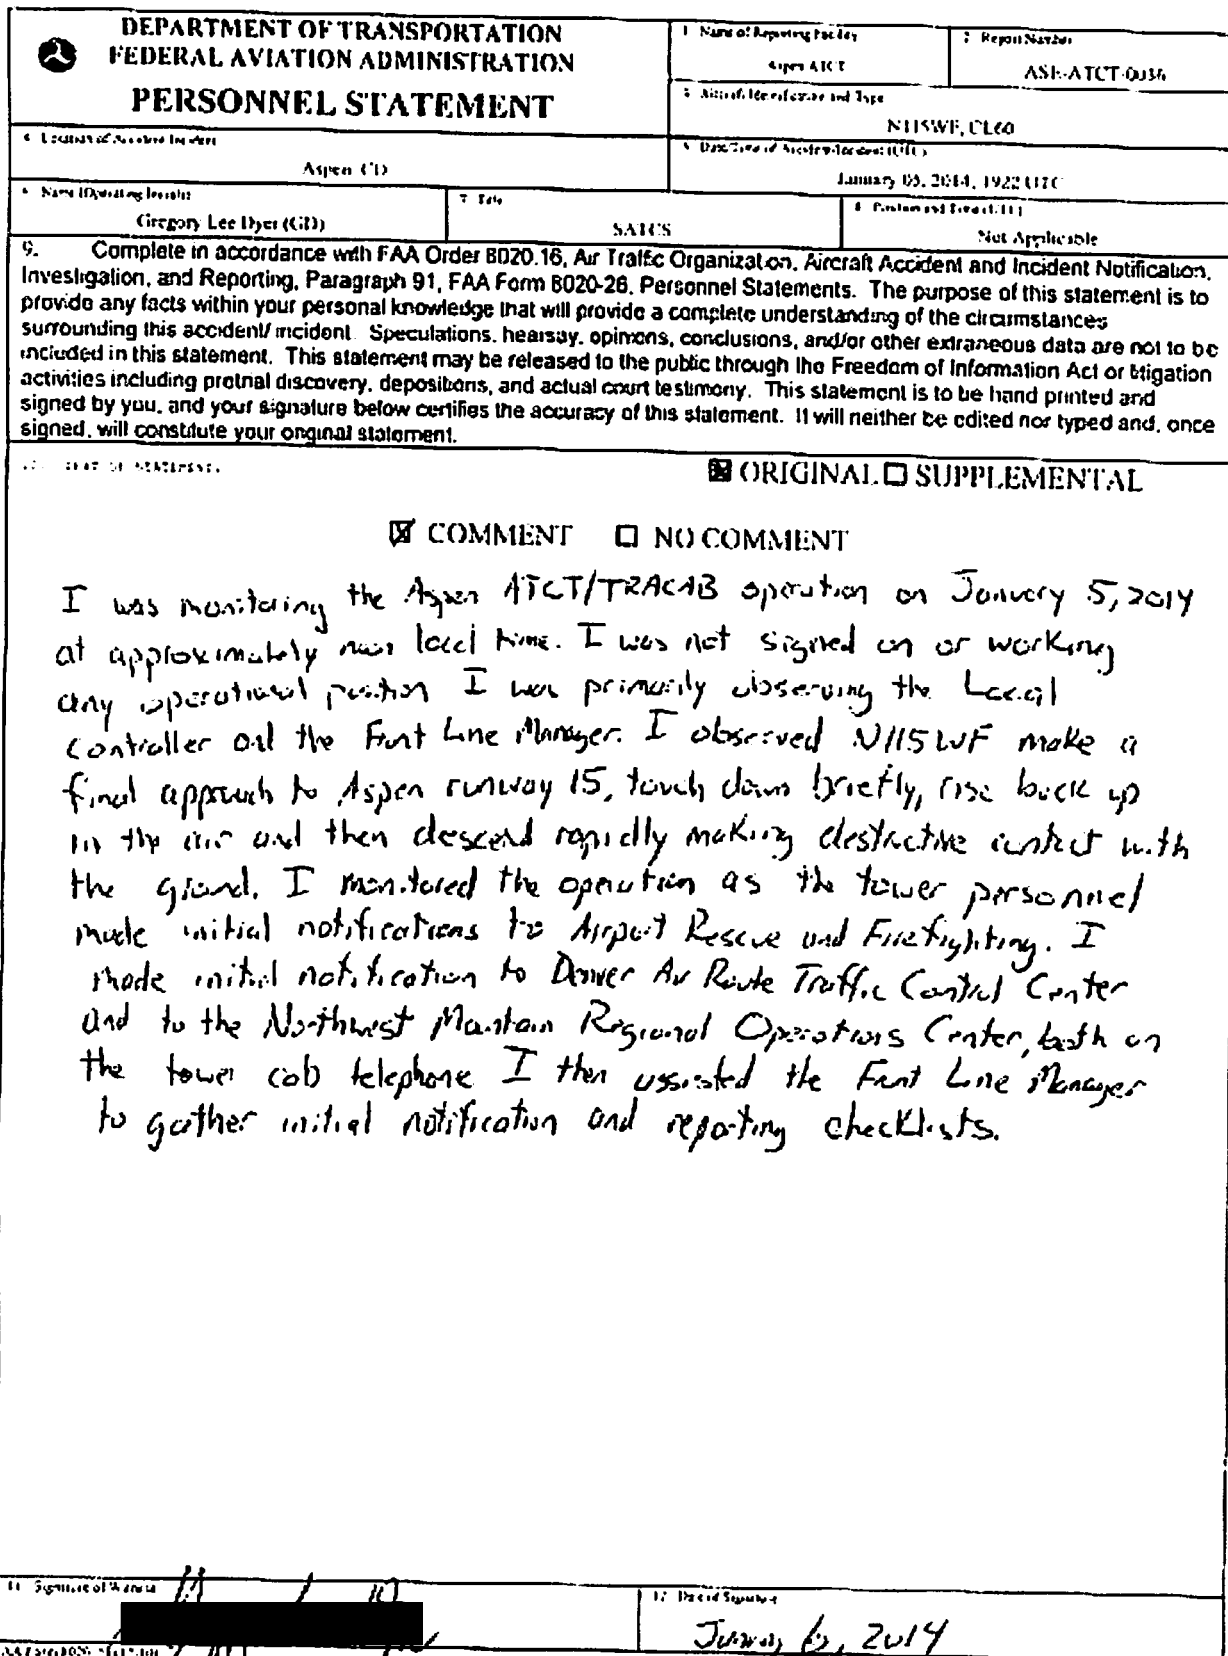 DEPARTMENT OF TRANSPORTATION
FEDERAL AVIATION ADMINISTRATION
PERSONNEL STATEMENT
1 Name of Reporting Facility
Aspen ATCT
2 Report Number
ASE-ATCT-0036
3 Aircraft Identification and Type
N115WF, CL60
4 Location of Accident/Incident
Aspen, CO
5 Date/Time of Accident/Incident (UTC)
January 05, 2014, 1922 UTC
6 Name (Operating Initials)
Gregory Lee Dyer (GD)
7 Title
SATCS
8 Position and Time (UTC)
Not Applicable
9. Complete in accordance with FAA Order 8020.16, Air Traffic Organization, Aircraft Accident and Incident Notification,
Investigation, and Reporting, Paragraph 91, FAA Form 8020-26, Personnel Statements. The purpose of this statement is to
provide any facts within your personal knowledge that will provide a complete understanding of the circumstances
surrounding this accident/incident. Speculations, hearsay, opinions, conclusions, and/or other extraneous data are not to be
included in this statement. This statement may be released to the public through the Freedom of Information Act or litigation
activities including pretrial discovery, depositions, and actual court testimony. This statement is to be hand printed and
signed by you, and your signature below certifies the accuracy of this statement. It will neither be edited nor typed and, once
signed, will constitute your original statement.
TEXT OF STATEMENT
☒ ORIGINAL ☐ SUPPLEMENTAL
☒ COMMENT ☐ NO COMMENT
I was monitoring the Aspen ATCT/TRACAB operation on January 5, 2014
at approximately noon local time. I was not signed on or working
any operational position I was primarily observing the Local
Controller and the Front Line Manager. I observed N115WF make a
final approach to Aspen runway 15, touch down briefly, rise back up
in the air and then descend rapidly making destructive contact with
the ground. I monitored the operation as the tower personnel
made initial notifications to Airport Rescue and Firefighting. I
made initial notification to Denver Air Route Traffic Control Center
and to the Northwest Mountain Regional Operations Center, both on
the tower cab telephone I then assisted the Front Line Manager
to gather initial notification and reporting checklists.
11 Signature of Witness
12 Date of Signature
January 6, 2014